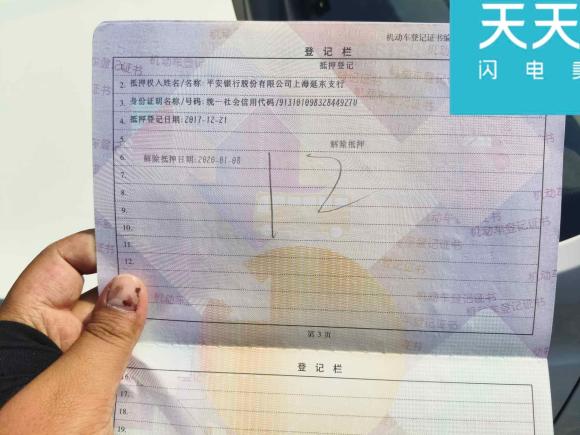 机动车登记证书编
天天
闪电
登记栏
1. 抵押登记
2. 抵押权人姓名/名称:平安银行股份有限公司上海延东支行
3. 身份证明名称/号码:统一社会信用代码/91310109832844927U
4. 抵押登记日期:2017-12-21
5. 解除抵押
6. 解除抵押日期:2020-01-08
7.
8.
9.
10.
11.
12.
12
第3页
登记栏
16.
17.
18.
19.